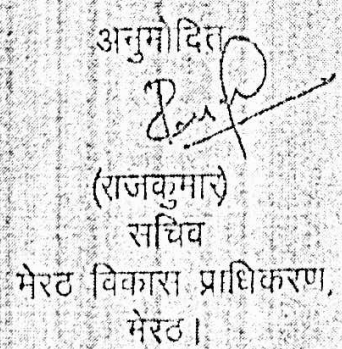 अनुमोदित
(राजकुमार)
सचिव
मेरठ विकास प्राधिकरण,
मेरठ।